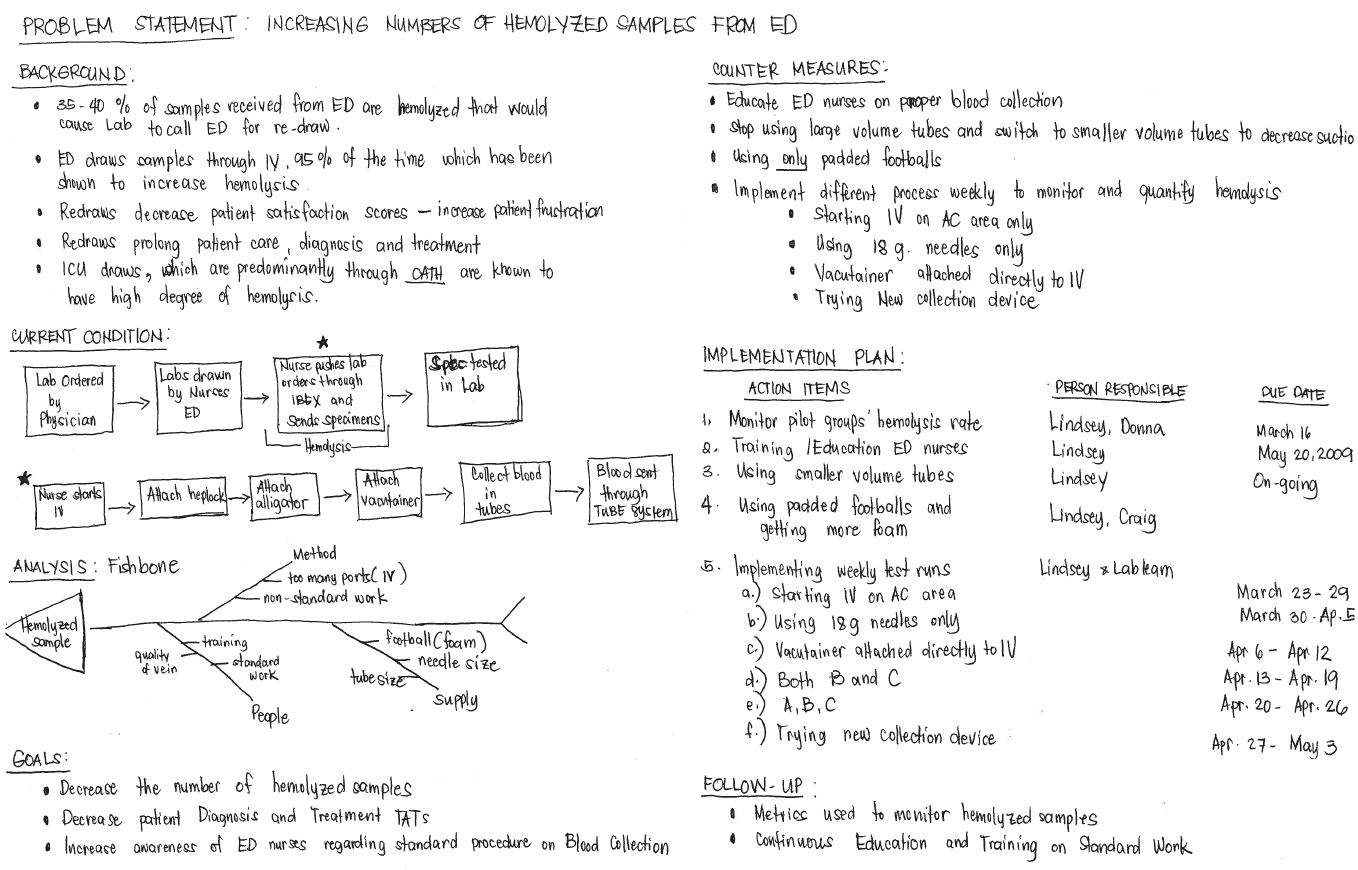 PROBLEM STATEMENT: INCREASING NUMBERS OF HEMOLYZED SAMPLES FROM ED
BACKGROUND:
• 35-40 % of samples received from ED are hemolyzed that would
cause Lab to call ED for re-draw.
• ED draws samples through IV, 95% of the time which has been
shown to increase hemolysis.
• Redraws decrease patient satisfaction scores – increase patient frustration
• Redraws prolong patient care, diagnosis and treatment
• ICU draws, which are predominantly through CATH are known to
have high degree of hemolysis.
CURRENT CONDITION:
Lab Ordered
by
Physician
Labs drawn
by Nurses
ED
★
Nurse pushes lab
orders through
IBEX and
Sends specimens
Hemolysis
Spec tested
in Lab
★
Nurse starts
IV
Attach heplock
Attach
alligator
Attach
vacutainer
Collect blood
in
tubes
Blood sent
through
TUBE System
ANALYSIS: Fishbone
Hemolyzed
sample
Method
too many ports (IV)
non-standard work
training
quality
of vein
standard
work
People
football (foam)
needle size
tube size
Supply
GOALS:
• Decrease the number of hemolyzed samples
• Decrease patient Diagnosis and Treatment TATs
• Increase awareness of ED nurses regarding standard procedure on Blood Collection
COUNTER MEASURES:
• Educate ED nurses on proper blood collection
• Stop using large volume tubes and switch to smaller volume tubes to decrease suctio
• Using only padded footballs
• Implement different process weekly to monitor and quantify hemolysis
• Starting IV on AC area only
• Using 18 g. needles only
• Vacutainer attached directly to IV
• Trying New collection device
IMPLEMENTATION PLAN:
ACTION ITEMS PERSON RESPONSIBLE DUE DATE
1. Monitor pilot groups' hemolysis rate Lindsey, Donna March 16
2. Training /Education ED nurses Lindsey May 20, 2009
3. Using smaller volume tubes Lindsey On-going
4. Using padded footballs and
getting more foam Lindsey, Craig
5. Implementing weekly test runs Lindsey & Lab team
a.) Starting IV on AC area March 23 - 29
b.) Using 18g needles only March 30 - Ap. 5
c.) Vacutainer attached directly to IV Apr 6 - Apr 12
d.) Both B and C Apr. 13 - Apr. 19
e.) A, B, C Apr. 20 - Apr. 26
f.) Trying new collection device Apr. 27 - May 3
FOLLOW-UP:
• Metrics used to monitor hemolyzed samples
• Continuous Education and Training on Standard Work